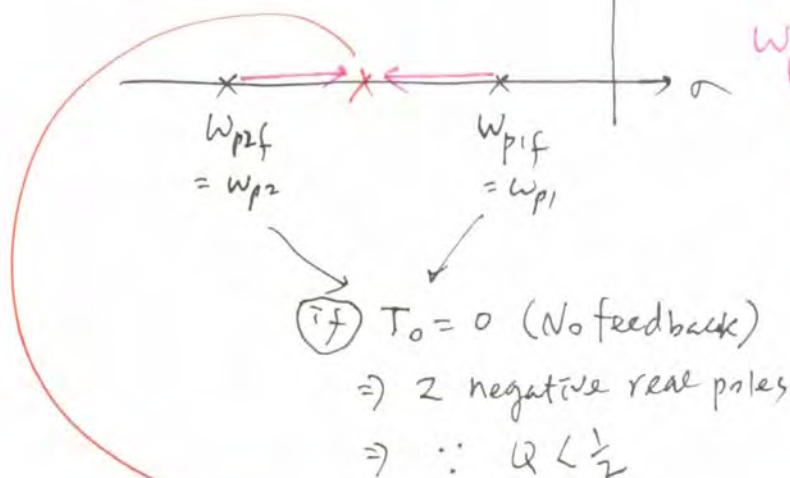 σ
W_p
W_p2f
W_p1f
= W_p2
= W_p1
if T_o = 0 (No feedback)
⇒ 2 negative real poles
⇒ ∵ Q < 1/2